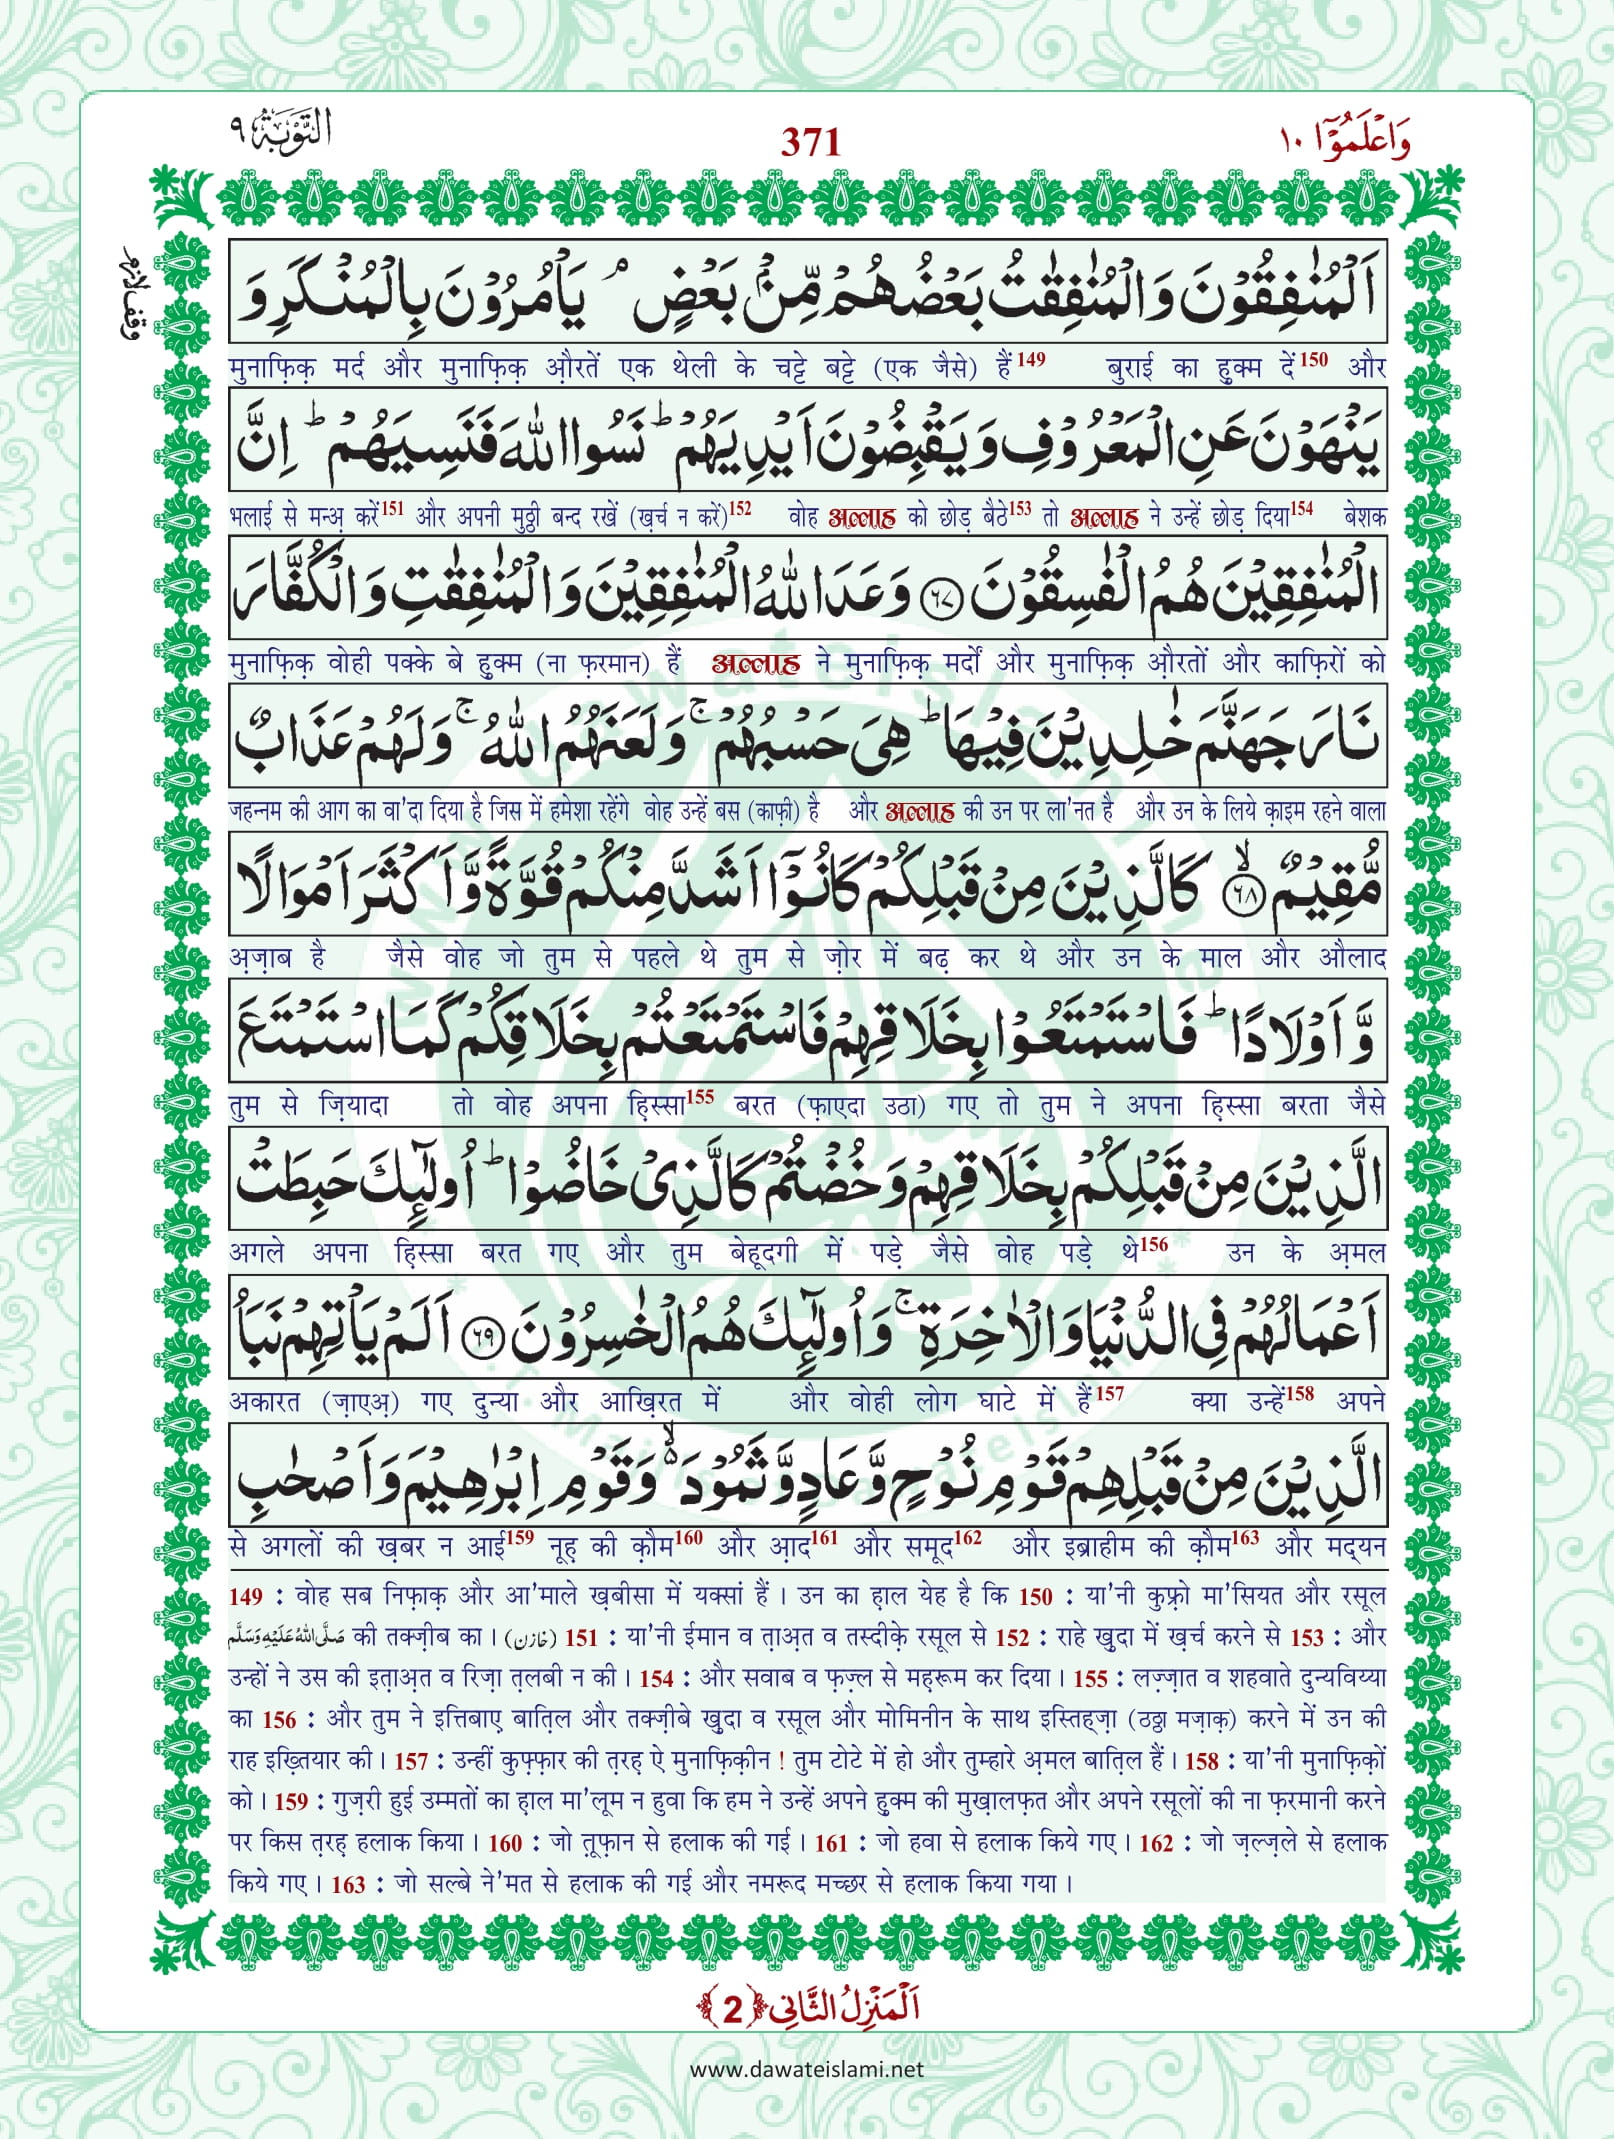 وَاعْلَمُوْۤا ١٠
371
اَلتَّوْبَة ٩
اَلْمُنٰفِقُوْنَ وَالْمُنٰفِقٰتُ بَعْضُهُمْ مِّنْۢ بَعْضٍ ۘ يَاْمُرُوْنَ بِالْمُنْكَرِ وَ
وقف لازم
मुनाफ़िक़ मर्द और मुनाफ़िक़ औ़रतें एक थेली के चट्टे बट्टे (एक जैसे) हैं149 बुराई का हुक्म दें150 और
يَنْهَوْنَ عَنِ الْمَعْرُوْفِ وَ يَقْبِضُوْنَ اَيْدِيَهُمْ ؕ نَسُوا اللّٰهَ فَنَسِيَهُمْ ؕ اِنَّ
भलाई से मन्अ़ करें151 और अपनी मुठ्ठी बन्द रखें (ख़र्च न करें)152 वोह अल्लाह को छोड़ बैठे153 तो अल्लाह ने उन्हें छोड़ दिया154 बेशक
الْمُنٰفِقِيْنَ هُمُ الْفٰسِقُوْنَ ٦٧ وَعَدَ اللّٰهُ الْمُنٰفِقِيْنَ وَ الْمُنٰفِقٰتِ وَ الْكُفَّارَ
मुनाफ़िक़ वोही पक्के बे हुक्म (ना फ़रमान) हैं अल्लाह ने मुनाफ़िक़ मर्दों और मुनाफ़िक़ औ़रतों और काफ़िरों को
نَارَ جَهَنَّمَ خٰلِدِيْنَ فِيْهَا ؕ هِيَ حَسْبُهُمْ ۚ وَ لَعَنَهُمُ اللّٰهُ ۚ وَ لَهُمْ عَذَابٌ
जहन्नम की आग का वा'दा दिया है जिस में हमेशा रहेंगे वोह उन्हें बस (काफ़ी) है और अल्लाह की उन पर ला'नत है और उन के लिये क़ाइम रहने वाला
مُّقِيْمٌ ٦٨ ۙ كَالَّذِيْنَ مِنْ قَبْلِكُمْ كَانُوْۤا اَشَدَّ مِنْكُمْ قُوَّةً وَّ اَكْثَرَ اَمْوَالًا
अ़ज़ाब है जैसे वोह जो तुम से पहले थे तुम से ज़ोर में बढ़ कर थे और उन के माल और औलाद
وَّ اَوْلَادًا ؕ فَاسْتَمْتَعُوْا بِخَلَاقِهِمْ فَاسْتَمْتَعْتُمْ بِخَلَاقِكُمْ كَمَا اسْتَمْتَعَ
तुम से ज़ियादा तो वोह अपना हि़स्सा155 बरत (फ़ाएदा उठा) गए तो तुम ने अपना हि़स्सा बरता जैसे
الَّذِيْنَ مِنْ قَبْلِكُمْ بِخَلَاقِهِمْ وَ خُضْتُمْ كَالَّذِيْ خَاضُوْا ؕ اُولٰٓىِٕكَ حَبِطَتْ
अगले अपना हि़स्सा बरत गए और तुम बेहूदगी में पड़े जैसे वोह पड़े थे156 उन के अ़मल
اَعْمَالُهُمْ فِي الدُّنْيَا وَ الْاٰخِرَةِ ۚ وَ اُولٰٓىِٕكَ هُمُ الْخٰسِرُوْنَ ٦٩ اَلَمْ يَاْتِهِمْ نَبَاُ
अकारत (ज़ाएअ़) गए दुन्या और आख़िरत में और वोही लोग घाटे में हैं157 क्या उन्हें158 अपने
الَّذِيْنَ مِنْ قَبْلِهِمْ قَوْمِ نُوْحٍ وَّ عَادٍ وَّ ثَمُوْدَ ۙ وَ قَوْمِ اِبْرٰهِيْمَ وَ اَصْحٰبِ
से अगलों की ख़बर न आई159 नूह़ की क़ौम160 और आ़द161 और समूद162 और इब्राहीम की क़ौम163 और मद्यन
149 : वोह सब निफ़ाक़ और आ'माले ख़बीसा में यक्सां हैं। उन का ह़ाल येह है कि 150 : या'नी कुफ़्रो मा'सियत और रसूल
صَلَّى اللّٰهُ عَلَيْهِ وَسَلَّم की तक्ज़ीब का। (خازن) 151 : या'नी ईमान व त़ाअ़त व तस्दीक़े रसूल से 152 : राहे ख़ुदा में ख़र्च करने से 153 : और
उन्हों ने उस की इत़ाअ़त व रिज़ा त़लबी न की। 154 : और सवाब व फ़ज़्ल से मह़रूम कर दिया। 155 : लज़्ज़ात व शहवाते दुन्यविय्या
का 156 : और तुम ने इत्तिबाए बात़िल और तक्ज़ीबे ख़ुदा व रसूल और मोमिनीन के साथ इस्तिह्ज़ा (ठठ्ठा मज़ाक़) करने में उन की
राह इख़्तियार की। 157 : उन्हीं कुफ़्फ़ार की त़रह़ ऐ मुनाफ़िक़ीन ! तुम टोटे में हो और तुम्हारे अ़मल बात़िल हैं। 158 : या'नी मुनाफ़िक़ों
को। 159 : गुज़री हुई उम्मतों का ह़ाल मा'लूम न हुवा कि हम ने उन्हें अपने हुक्म की मुख़ालफ़त और अपने रसूलों की ना फ़रमानी करने
पर किस त़रह़ हलाक किया। 160 : जो त़ूफ़ान से हलाक की गई। 161 : जो हवा से हलाक किये गए। 162 : जो ज़ल्ज़ले से हलाक
किये गए। 163 : जो सल्बे ने'मत से हलाक की गई और नमरूद मच्छर से हलाक किया गया।
اَلْمَنْزِلُ الثَّانِي ﴿2﴾
www.dawateislami.net